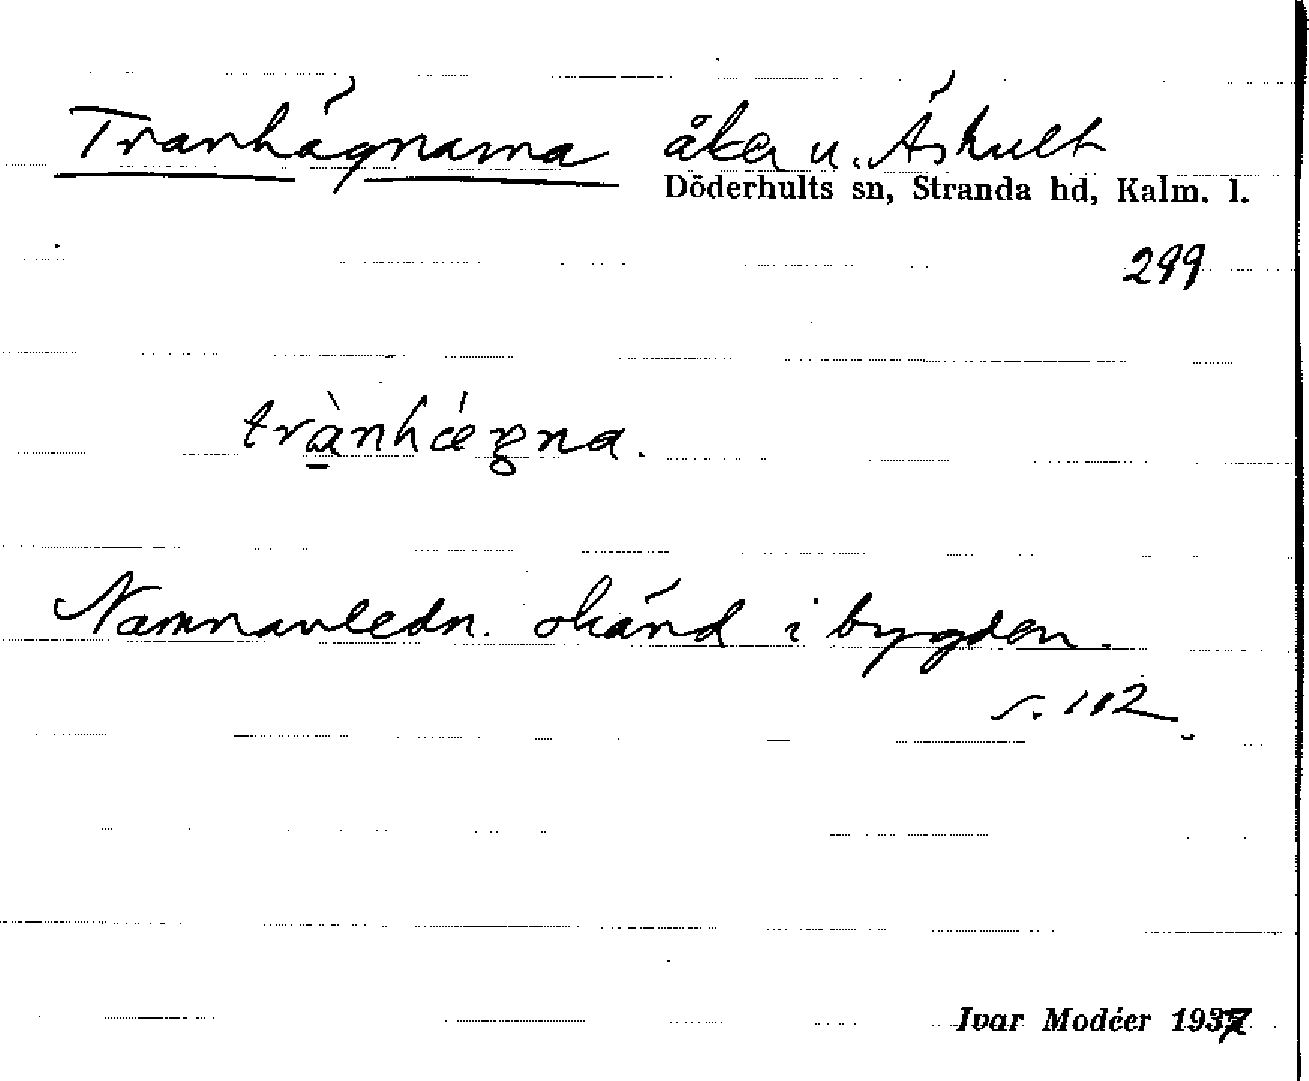 Tranhägnarna åker u. Äshult
Döderhults sn, Stranda hd, Kalm. l.
299
trà̱nhǽgna.
Namnavledn. okänd i bygden.
s. 102.
Ivar Modéer 1937